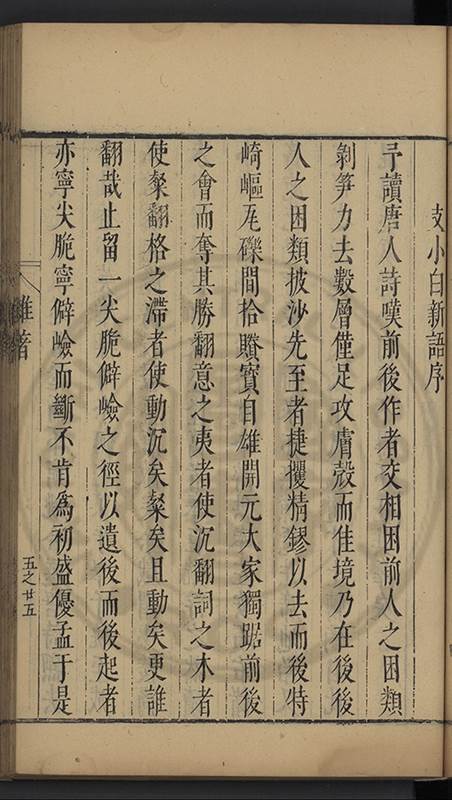 支小白新語序
予讀唐人詩嘆前後作者交相困前人之困類
剝笋力去數層僅足攻膚殼而佳境乃在後後
人之困類披沙先至者捷攫精鏐以去而後特
崎嶇瓦礫間拾賸寶自雄開元大家獨踞前後
之會而奪其勝翻意之夷者使沉翻詞之木者
使粲翻格之滯者使動沉矣粲矣且動矣更誰
翻哉止留一尖脆僻嶮之徑以遺後而後起者
亦寧尖脆寧僻嶮而斷不肯爲初盛優孟于是
雜著
五之廿五